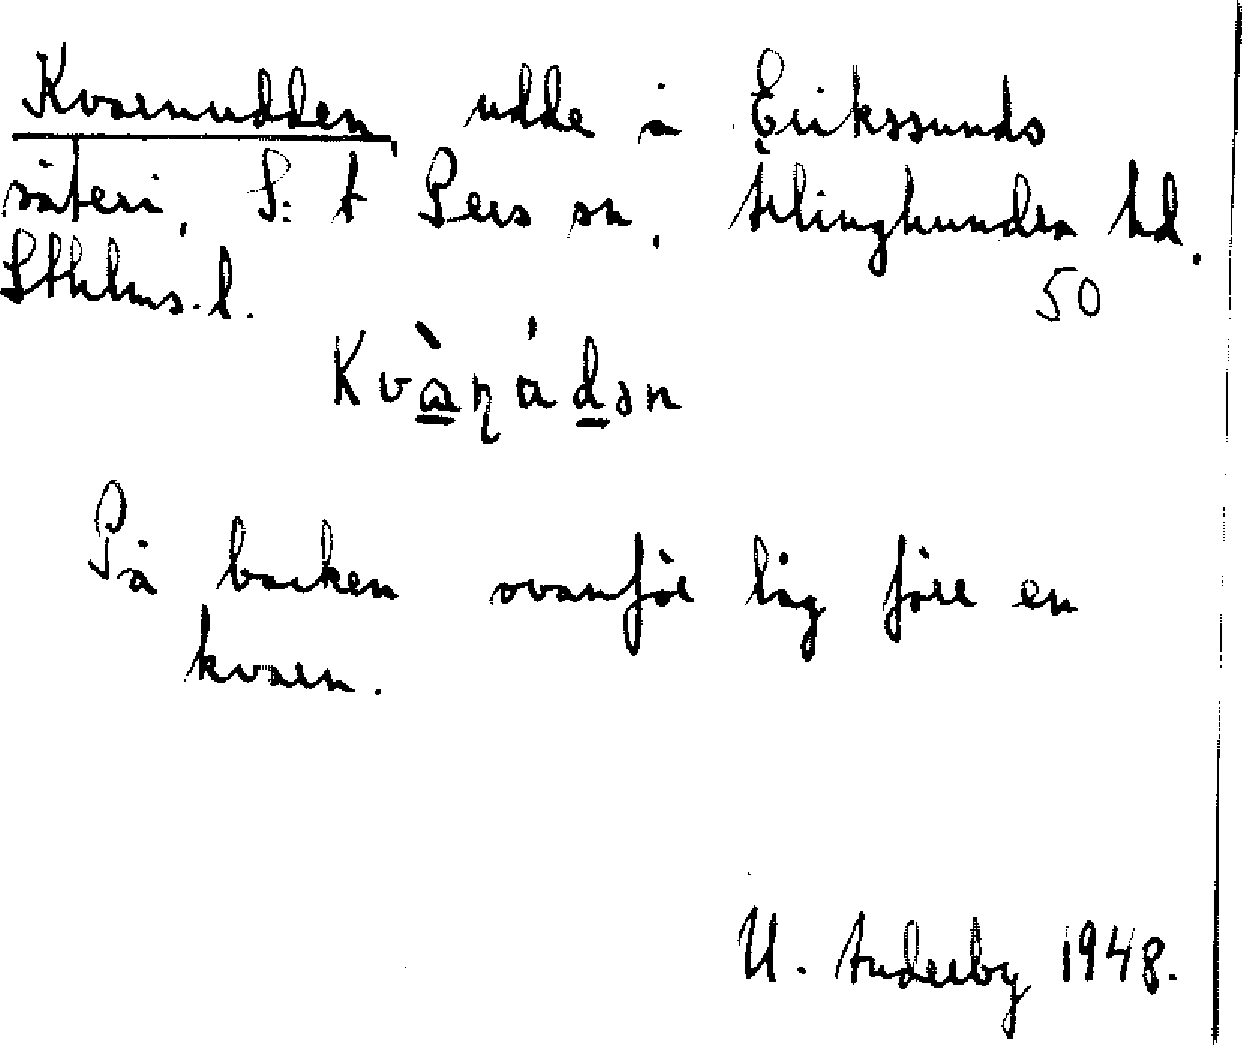 Kvarnudden, udde å Erikssunds
säteri, S:t Pers sn, Ärlinghundra hd.
Sthlms. l.
50
Kvàɳádən
På backen ovanför låg förr en
kvarn.
U. Anderby 1948.